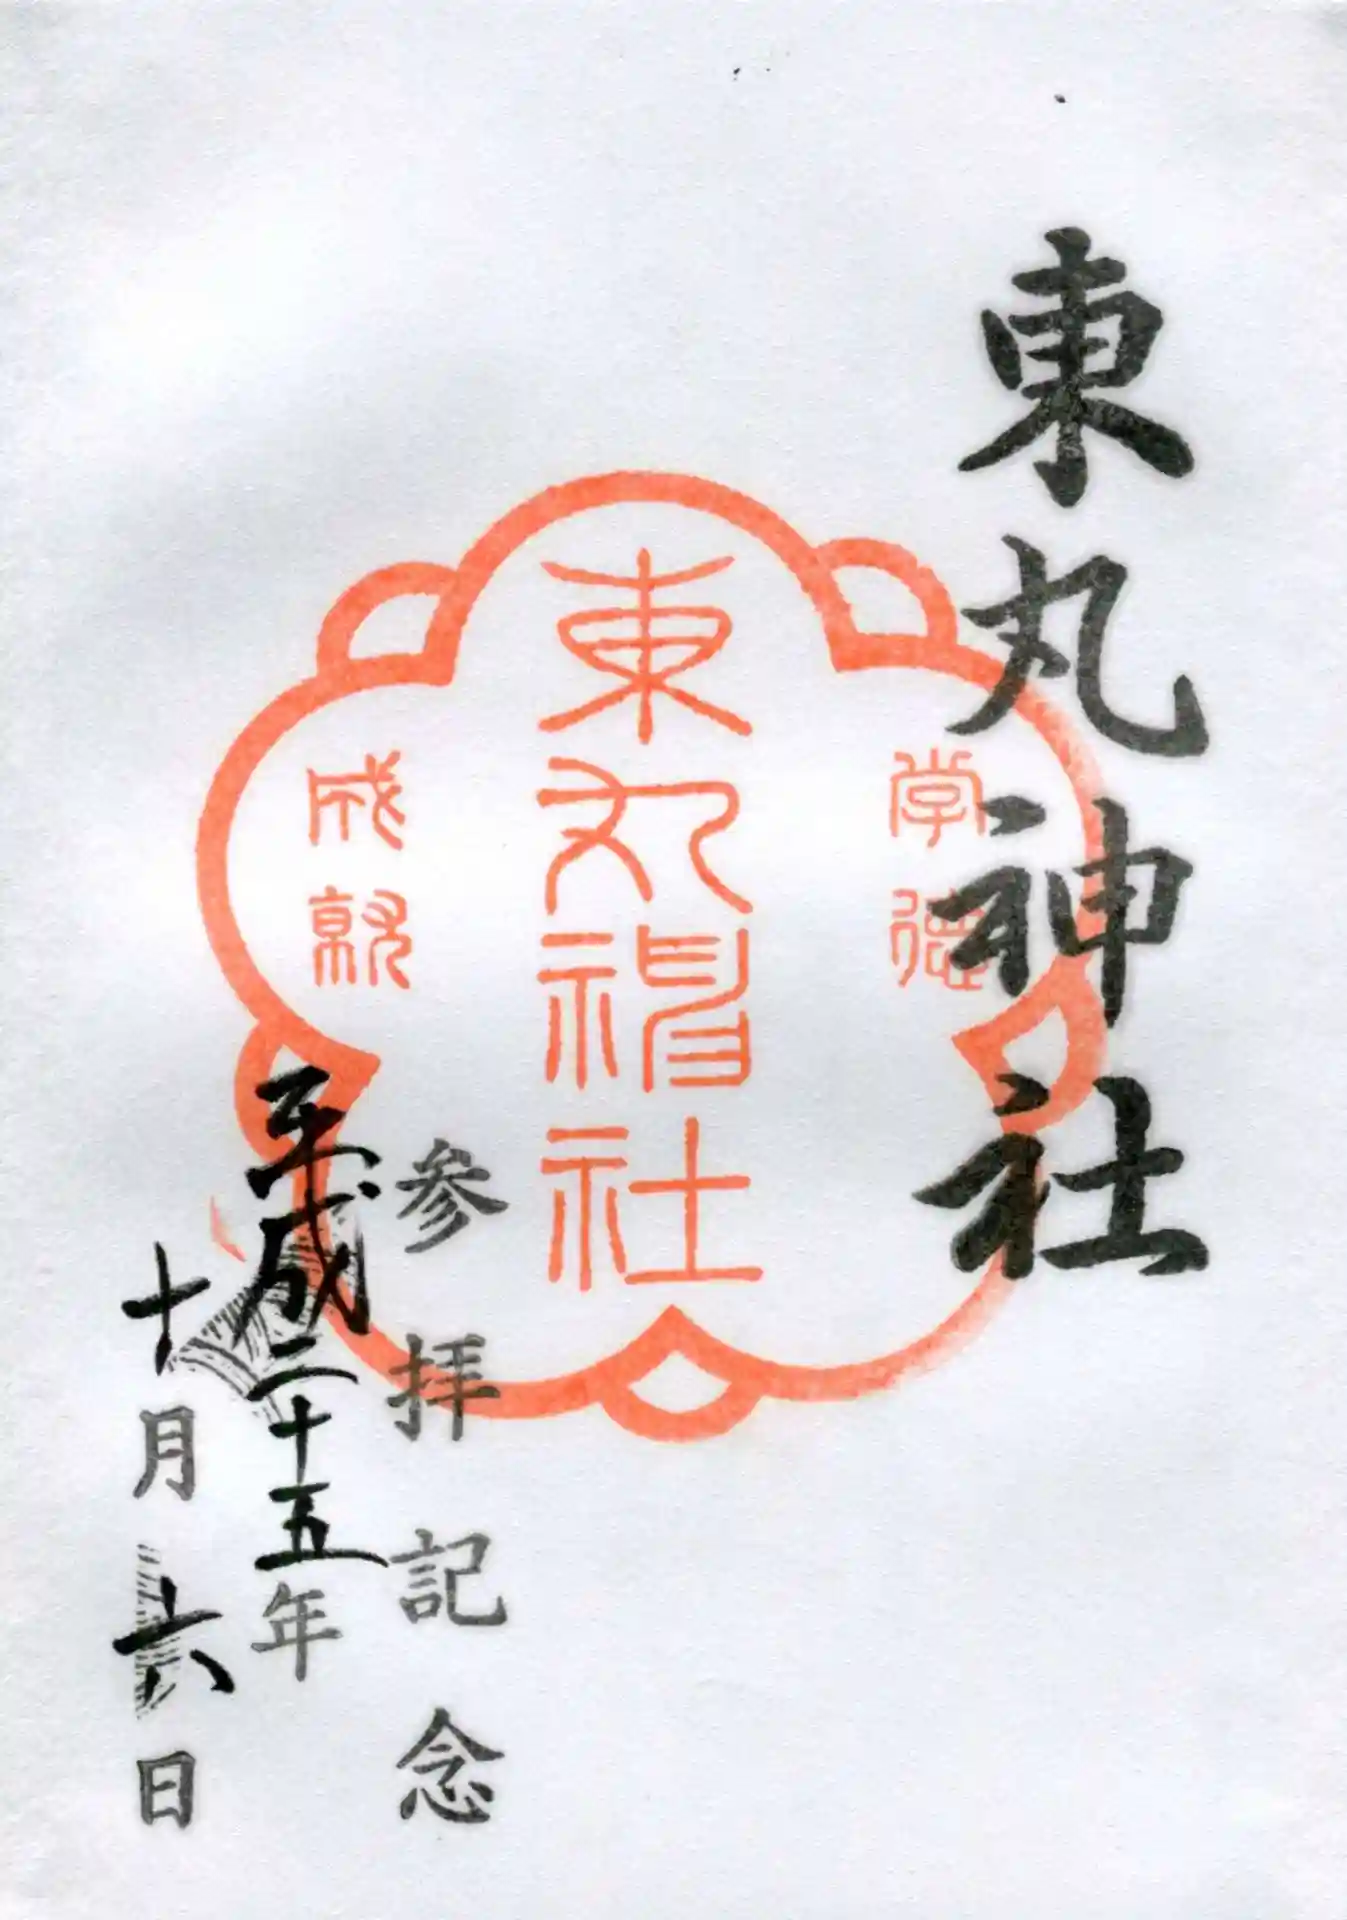 東丸神社
学徳
東丸神社
成就
参拝記念
平成二十五年
十月六日